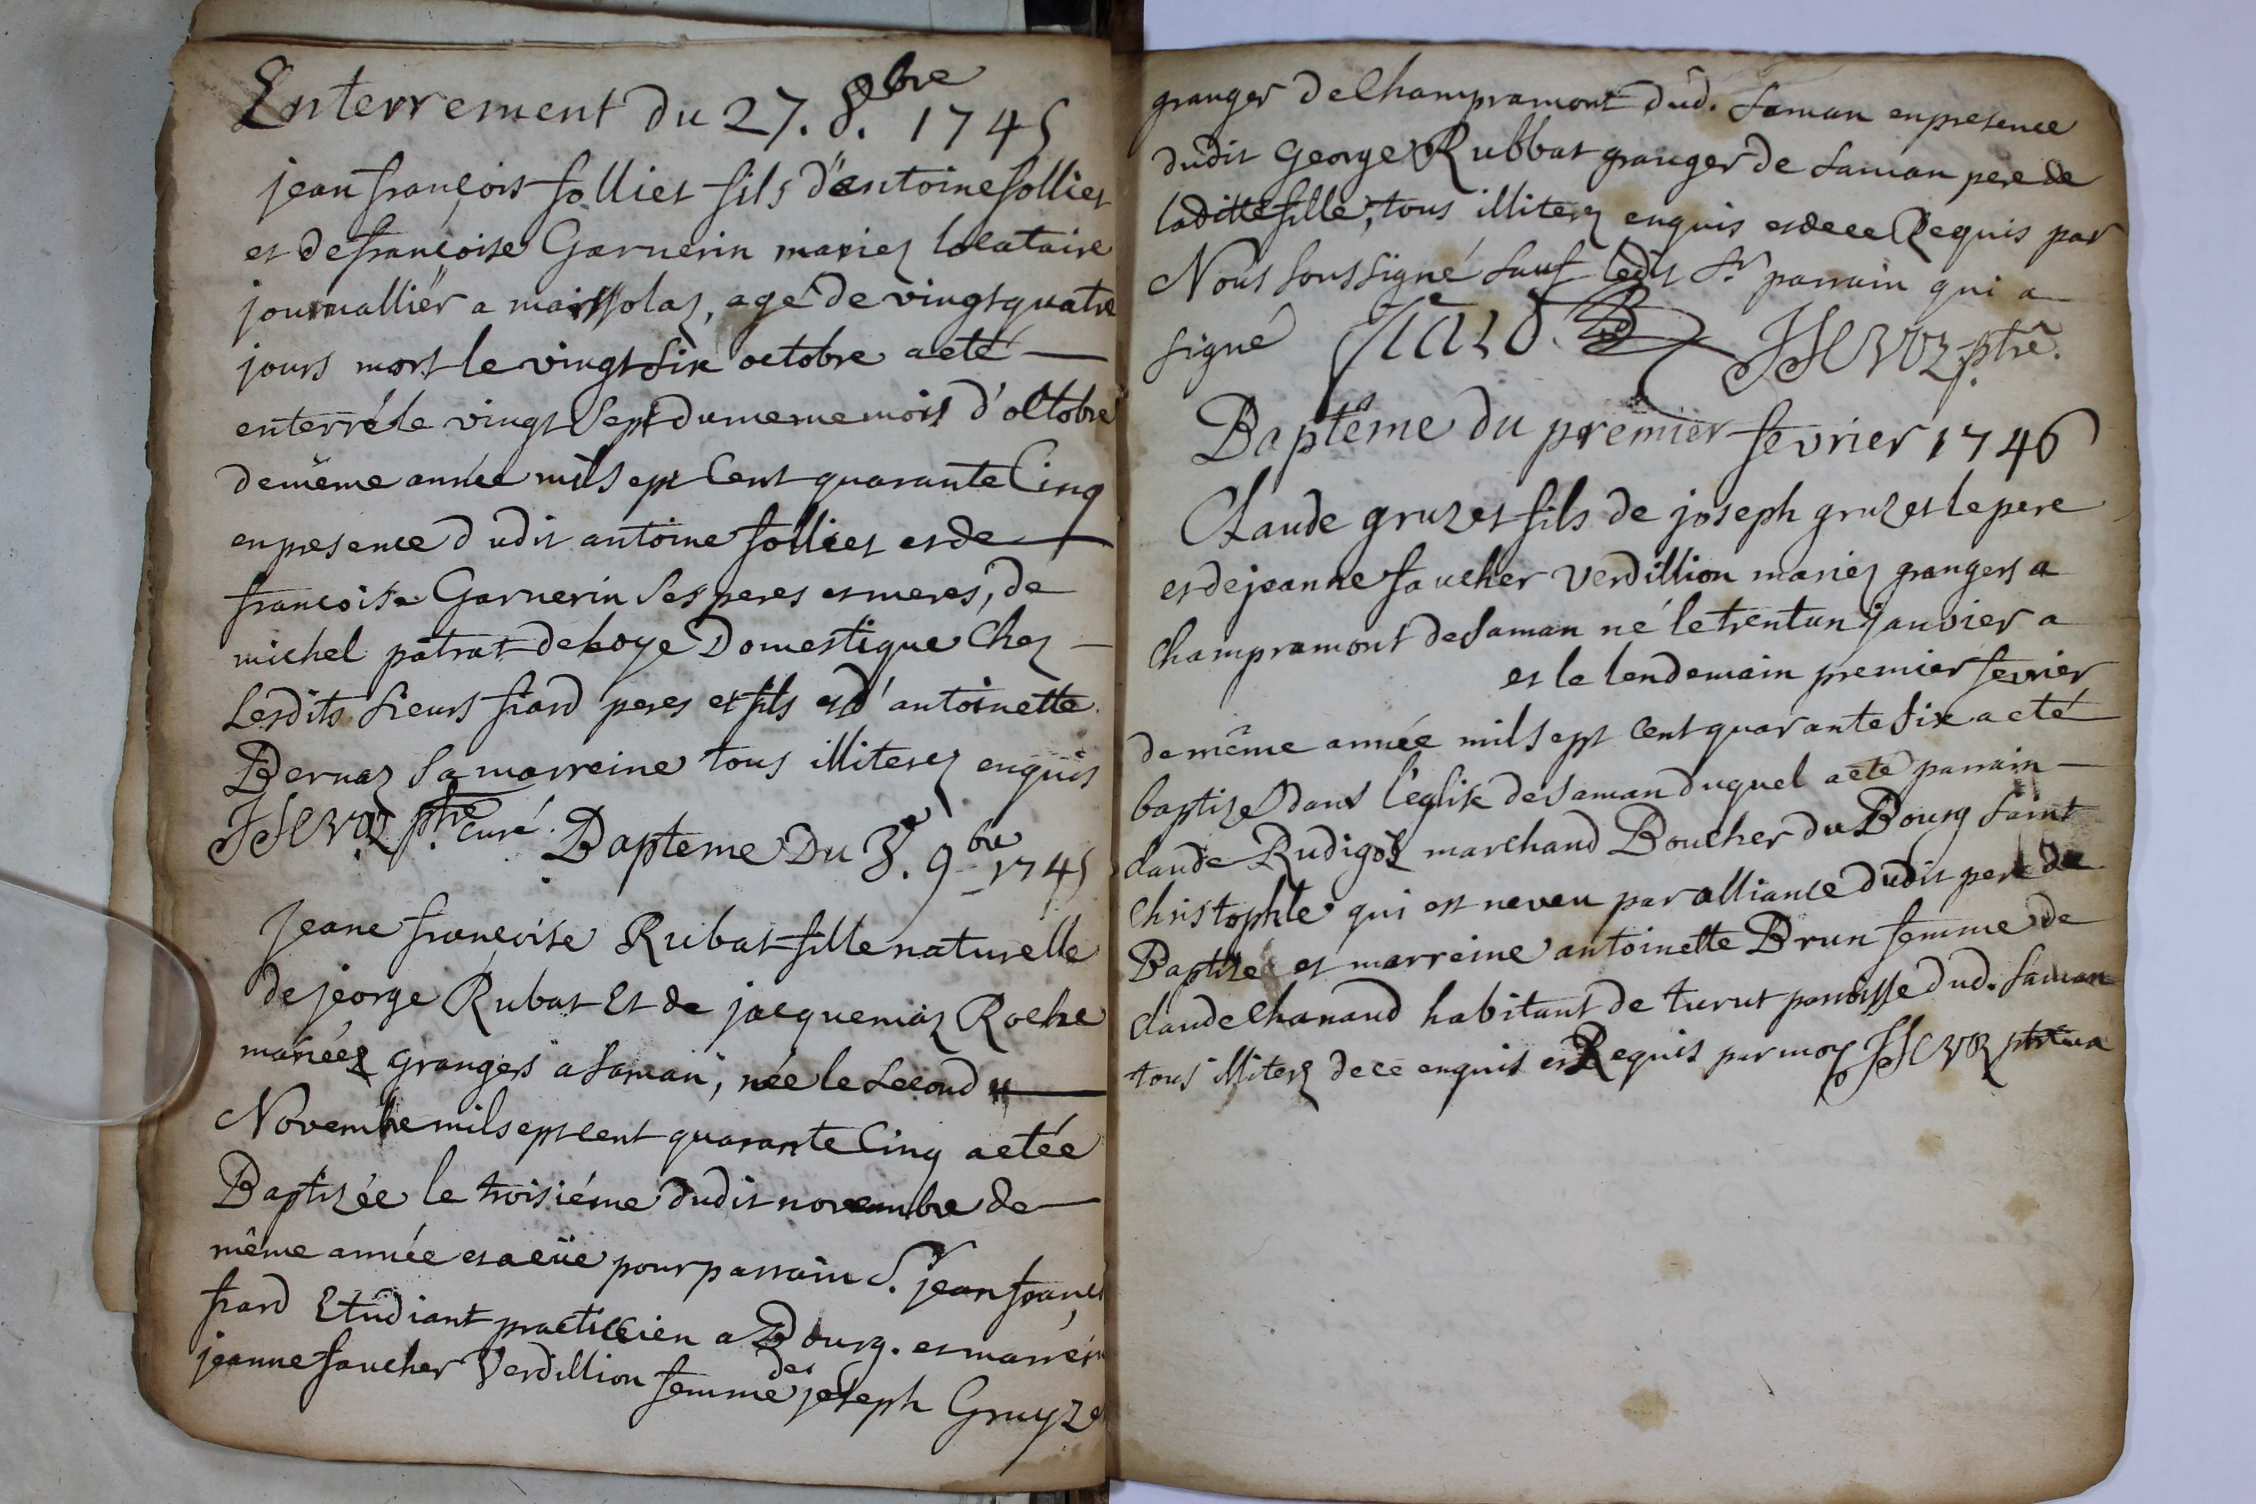 Enterrement du 27. 8.bre 1745
jean françois follier fils d'antoine follier
et de françoise Garnerin mariez locataire
journallier a maissolaz, agé de vingt quatre
jours mort le vingt six octobre a eté
enterré le vingt Sept du meme mois d'octobre
de même année mil sept Cent quarante Cinq
en presence dudit antoine follier et de
francoise Garnerin Ses peres et meres, de
michel patrat de loye Domestique Chez
Lesdits Sieurs fiard peres et fils et d'antoinette
Bernaz Sa marreine tous illiterez enquis
ptre curé.
Bapteme Du 3. 9.bre 1745
Jeane françoise Rubat fille naturelle
de jeorge Rubat Et de jacquemaz Roche
mariéez grangers a Saman, née le Second
Novembre mil sept cent quarante Cinq a etée
Baptizée le troisiéme dudit novembre de
même année et a eüe pour parrain S.r jean franç
fiard Etudiant practicien a Bourg. et marrein
jeanne faucher Verdillion femme de joseph Gruyze
granger de Champramont dud. Saman en presence
dudit George Rubbat granger de Saman pere de
laditte fille, tous illiterez enquis et de ce Requis par
Nous Soussigné Sauf ledit Sr. parrain qui a
signé fiard ptre.
Baptême du premier fevrier 1746
Claude gruzet fils de joseph gruzet le pere
et de jeanne faucher Verdillion mariez grangers a
Champramont de Saman né le trent un janvier a
et le lendemain premier fevrier
de même année mil sept Cent quarante Six a eté
baptizé dans l'eglise de Saman duquel a eté parrain
claude Rudigoz marchand Boucher du Bourg Saint
Christophle qui est neveu par alliance dudit pere de
Baptize et marreine antoinette Brun femme de
claude Chanaud habitant de turut parroisse dud. Saman
tous illiterz de ce enquis et Requis par moy